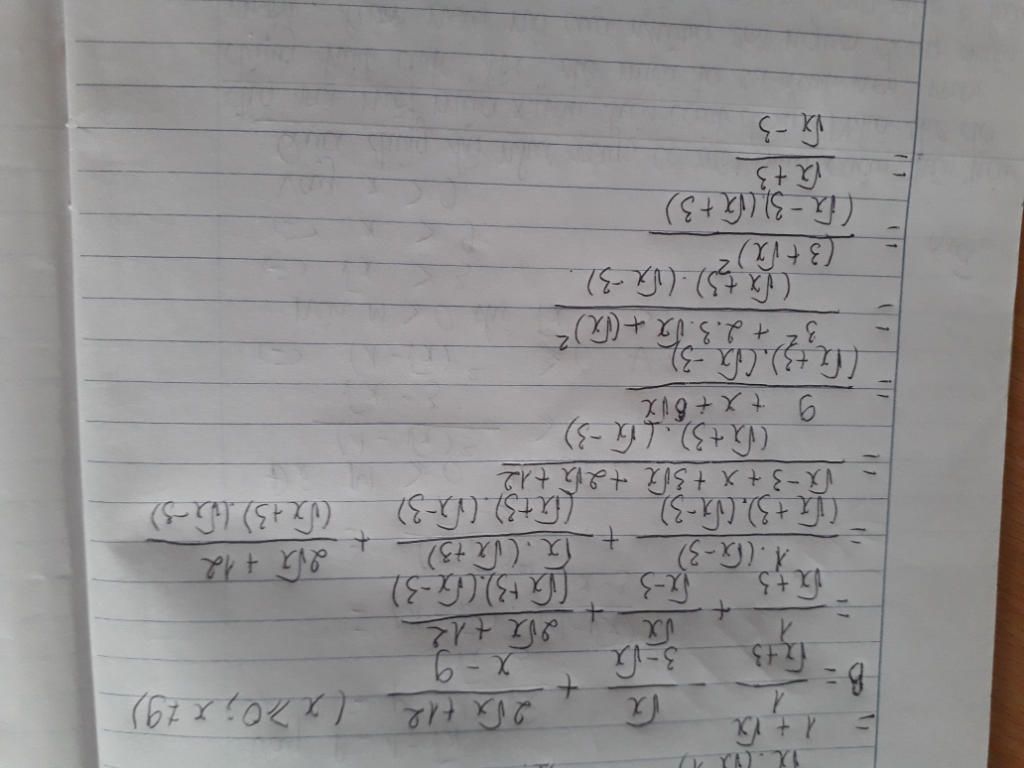 √x . (√x 1)
= 1 + √x
B = 1/(√x+3) - √x/(3-√x) + (2√x + 12)/(x - 9) (x ≥ 0; x ≠ 9)
= 1/(√x + 3) + √x/(√x - 3) + (2√x + 12)/((√x + 3).(√x - 3))
= (1 . (√x - 3))/((√x + 3).(√x - 3)) + (√x . (√x + 3))/((√x + 3).(√x - 3)) + (2√x + 12)/((√x + 3).(√x - 3))
= (√x - 3 + x + 3√x + 2√x + 12)/((√x + 3).(√x - 3))
= (9 + x + 6√x)/((√x + 3).(√x - 3))
= (3² + 2.3.√x + (√x)²)/((√x + 3).(√x - 3))
= (3 + √x)²/((√x - 3).(√x + 3))
= (√x + 3)/(√x - 3)